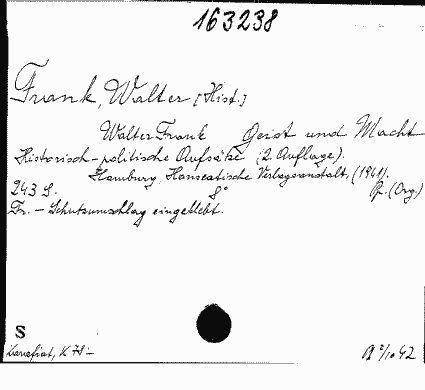 163238
Frank, Walter [Hist.]
Walter Frank Geist und Macht
Historisch-politische Aufsätze (2. Auflage).
Hamburg: Hanseatische Verlagsanstalt, (1941).
243 S. 8° (Org.)
Fr. - Schutzumschlag eingeklebt.
S
K 78.-